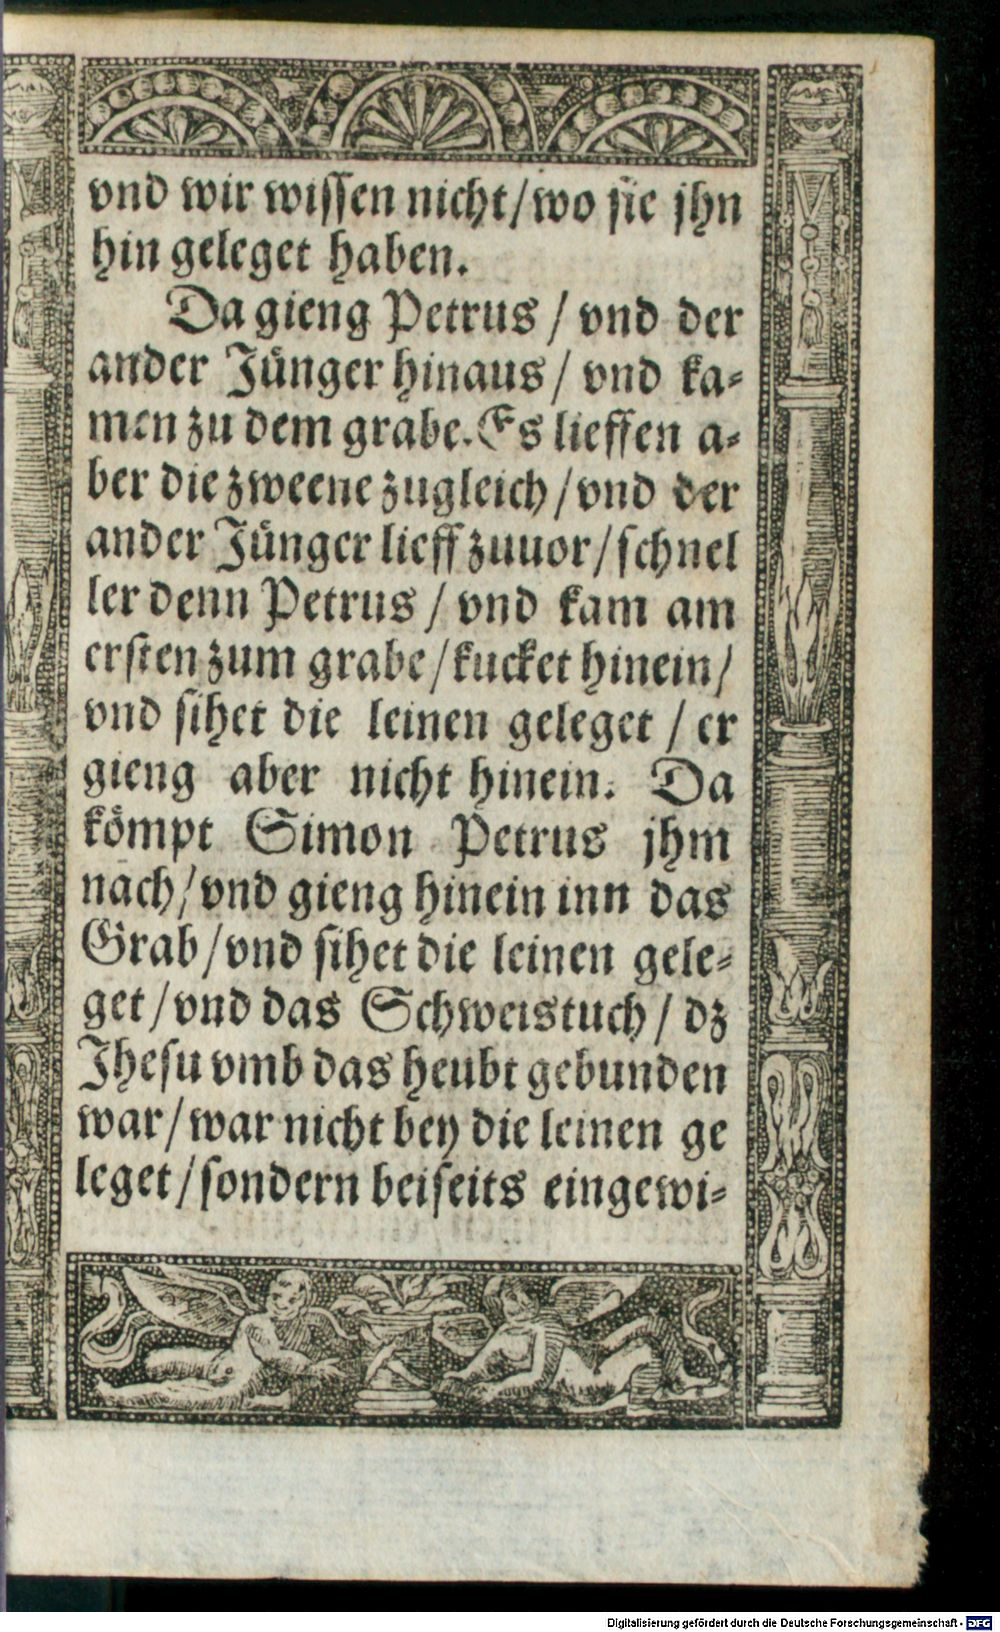 vnd wir wissen nicht/wo sie jhn
hin geleget haben.
Da gieng Petrus / vnd der
ander Jünger hinaus / vnd ka-
men zu dem grabe. Es lieffen a-
ber die zweene zugleich / vnd der
ander Jünger lieff zuuor/schnel
ler denn Petrus / vnd kam am
ersten zum grabe/kucket hinein/
vnd sihet die leinen geleget / er
gieng aber nicht hinein. Da
kömpt Simon Petrus jhm
nach/vnd gieng hinein inn das
Grab/vnd sihet die leinen gele-
get/vnd das Schweistuch / dz
Jhesu vmb das heubt gebunden
war/war nicht bey die leinen ge
leget/sondern beiseits eingewi-
Digitalisierung gefördert durch die Deutsche Forschungsgemeinschaft - DFG